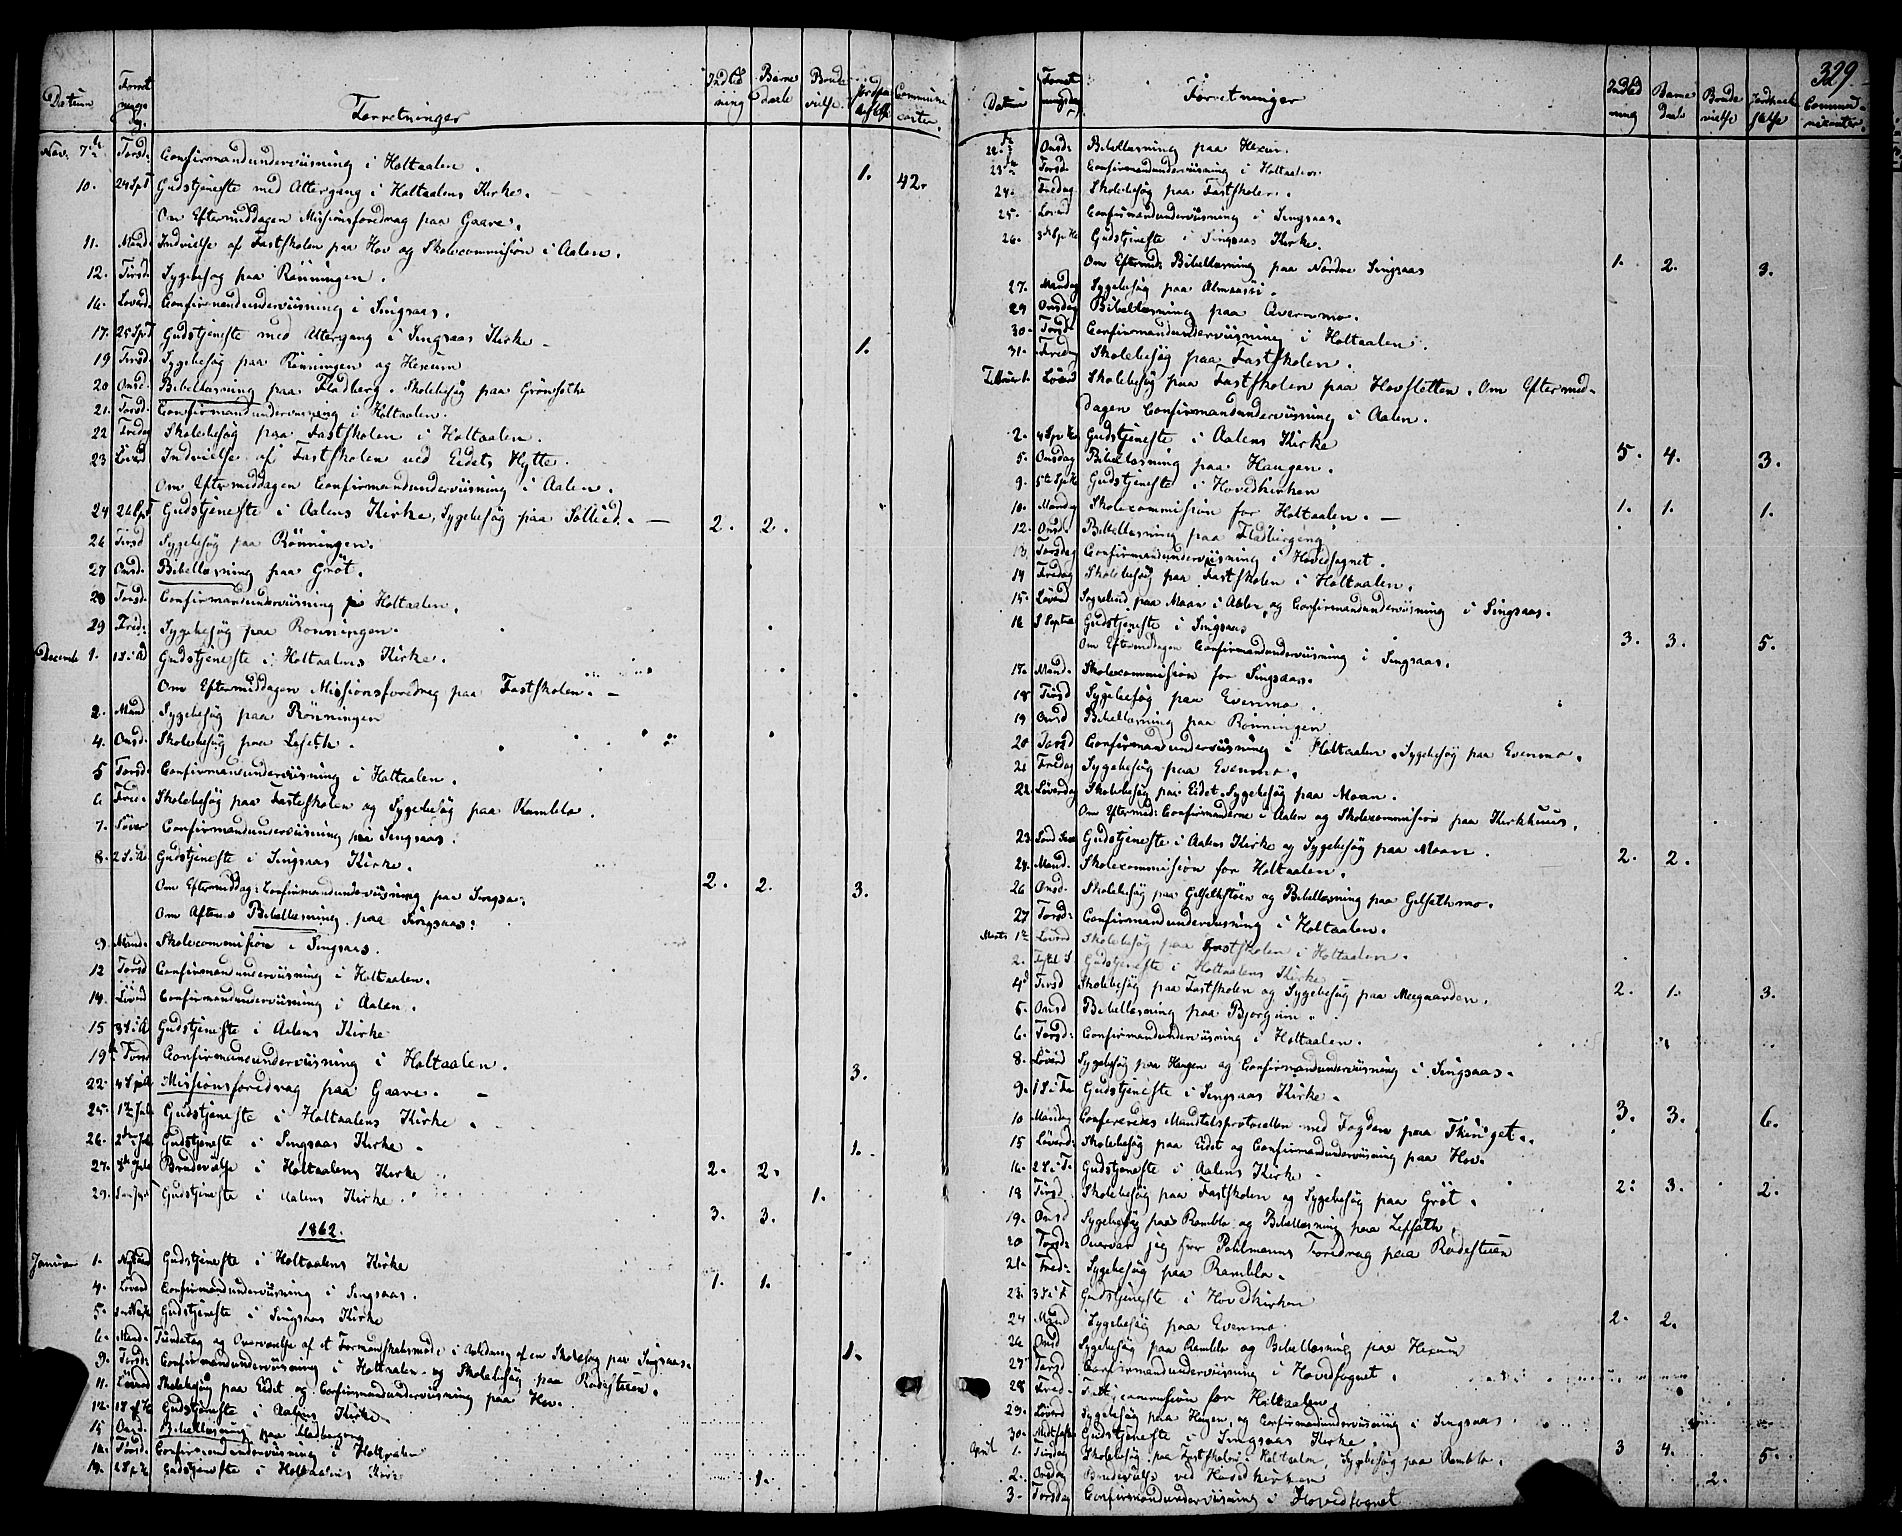 Datum Forretningsdag. Forretninger Indledning Barnedaab Brudevielse Jordpaakastelse Communicanter.
Nov. 7de Torsd: Confirmandunderviisning i Holtaalen.
10. 24 S p T Gudstjeneste med Altergang i Holtaalens Kirke. 1. 42.
Om Eftermiddagen Missionsforedrag paa Gaare.
11. Mand. Indvielse af Fastskolen paa Hov og Skolecommission i Aalen.
12. Tirsd. Sygebesøg paa Rönningen.
16. Löverd. Confirmandunderviisning i Singsaas.
17. 25 S p T Gudstjeneste med Altergang i Singsaas Kirke – 1.
19 Tirsd. Sygebesøg paa Rönningen og Hexem
20 Onsd. Bibellæsning paa Fladberg. Skolebesøg paa Grönsethe
21. Torsd. Confirmandunderviisning i Holtaalen.
22 Fredag Skolebesøg paa Fastskolen i Holtaalen.
23 Löverd Indvielse af Fastskolen ved Eidets Hytte.
Om Eftermiddagen Confirmandunderviisning i Aalen.
24 26 S p T Gudstjeneste i Aalens Kirke, Sygebesøg paa Sollied. – 2. 2.
26 Tirsd Sygebesøg paa Rönningen.
27 Onsd. Bibellæsning paa Gröt.
28 Torsd. Confirmandunderviisning i Holtaalen.
29 Fred: Sygebesøg paa Rönningen.
Decemb 1. 1 S i A Gudstjeneste i Holtaalens Kirke.
Om Eftermiddagen Missionsforedrag paa Fastskolen. –
2. Mand Sygebesøg paa Rönningen
4. Onsd. Skolebesøg paa Lefeth.
5 Torsd. Confirmandunderviisning i Holtaalen.
6 Fred. Skolebesøg paa Fasteskolen og Sygebesøg paa Ramblo.
7. Löver Confirmandunderviisning paa Singsaas.
8. 2 S i A Gudstjeneste i Singsaas Kirke. 2. 2. 3.
Om Eftermiddag: Confirmandunderviisning paa Singsa:
Om Aftenen Bibellæsning paa Singsaas:
9. Mand. Skolecommission i Singsaas.
12 Torsd Confirmandunderviisning i Holtaalen.
14. Löverd Confirmandunderviisning i Aalen.
15 3 S i A Gudstjeneste i Aalens Kirke
19. Torsd Confirmandunderviisning i Holtaalen. 3.
22. 4 S Missionsforedrag paa Gaare. –
25. 1ste Jul Gudstjeneste i Holtaalens Kirke.
26. 2den Jul Gudstjeneste i Singsaas Kirke. 2. 2. 1.
27. 3de Jul Brudevielse i Holtaalens Kirke 1.
29. Gudstjeneste i Aalens Kirke. 3. 3.
1862.
Januar 1. Nytaar Gudstjeneste i Holtaalens Kirke 1. 1.
4. Löverd Confirmandunderviisning i Singsaas.
5. Gudstjeneste i Singsaas Kirke 1.
6. Mand. Tiendetag og Overværelse af et Formandskabsmöde i Anledning af en Skolesag paa Singsaas.
9. Torsd: Confirmandunderviisning i Holtaalen og Skolebesøg paa Rödestuen.
11. Löverd Skolebesøg paa Eidet og Confirmandunderviisning paa Hov.
12. Gudstjeneste i Aalens Kirke.
15 Onsd. Bibellæsning paa Fladbergeng
16. Torsd. Confirmandunderviisning i Holtaalen
19. Gudstjeneste i Holtaalens Kirke 1.
329.
Datum Forretningsdag Forretninger Indledning Barnedaab Brudevielse Jordpaakastelse Communicanter.
22de Onsd: Bibellæsning paa Hexem.
23de Torsd. Confirmandunderviisning i Holtaalen.
24. Fredag Skolebesøg paa Fastskolen.
25. Löverd Confirmandunderviisning i Singsaas.
26. Gudstjeneste i Singsaas Kirke.
Om Efterm: Bibellæsning paa Nordre Singsaas 1. 2. 3.
27. Mandag Sygebesøg paa Almaasii.
29 Onsdag Bibellæsning paa Qvernmo.
30. Torsd. Confirmandunderviisning i Holtaalen.
31. Fredag Skolebesøg paa Fastskolen.
Februar 1. Löverd Skolebesøg paa Fastskolen paa Hovsletten. Om Eftermiddagen Confirmandunderviisning i Aalen.
2. Gudstjeneste i Aalens Kirke 5. 4. 3.
5. Onsdag Bibellæsning paa Haugen.
9. Gudstjeneste i Hovedkirken 1. 1. 1.
10. Mandag Skolecommission for Holtaalen. –
12. Onsd. Bibellæsning paa Fladbergeng
13 Torsdag Confirmandunderviisning i Hovedsognet.
14 Fredag Skolebesøg paa Fastskolen i Holtaalen.
15. Löverd Sygebesøg paa Moan i Aalen og Confirmandunderviisning i Singsaas.
16 Gudstjeneste i Singsaas 3. 3. 5.
Om Eftermiddagen Confirmandunderviisning i Singsaas.
17. Mand. Skolecommission for Singsaas.
18 Tirsd Sygebesøg paa Evenmo.
19 Onsd Bibellæsning paa Rönningen
20 Torsd Confirmandunderviisning i Holtaalen. Sygebesøg paa Evenmo.
21 Fredag Sygebesøg paa Evenmo.
22. Löverdag Skolebesøg paa Eidet. Sygebesøg paa Moan.
Om Efterm: Confirmanderne i Aalen og Skolecommission paa Kirkhuus.
23. Gudstjeneste i Aalens Kirke og Sygebesøg paa Moan. 2. 2.
24. Mand. Skolecommission for Holtaalen.
26 Onsd. Skolebesøg paa og Bibellæsning paa
27 Torsd: Confirmandunderviisning i Holtaalen.
Marts 1. Löverd Skolebesøg paa Fastskolen i Holtaalen.
2. Gudstjeneste i Holtaalens Kirke 2. 1. 3.
4. Tirsd Skolebesøg paa Fastskolen og Sygebesøg paa Meegaarden.
5. Onsd Bibellæsning paa
6. Torsd. Confirmandunderviisning i Holtaalen.
8. Löverd Sygebesøg paa Haugen og Confirmandunderviisning i Singsaas.
9. 1 S i Fa Gudstjeneste i Singsaas Kirke. 3. 3. 6.
10 Mandag Confereredes Mandtalsprotocollen med Fogden paa Thinget.
15 Löverd: Skolebesøg paa Eidet og Confirmandunderviisning paa Hov.
16. 2 S i F. Gudstjeneste i Aalens Kirke 2. 3. 2.
18 Tirsd. Skolebesøg paa Fastskolen og Sygebesøg paa Gröt.
19. Onsd Sygebesøg paa Ramblo og Bibellæsning paa
20 Torsd: Overvar jeg Herr Pohlmanns Foredrag paa Rödestuen
21. Fred: Sygebesøg paa Ramblo.
23. 3 S i F Gudstjeneste i Hovedkirken 2. 2.
24 Mand Sygebesøg paa Evenmo
26 Onsd Sygebesøg paa Ramblo og Bibellæsning paa Hexem
27 Torsd Confirmandunderviisning i Hovedsognet.
28 Fred. commission for Holtaalen.
29. Löverd Sygebesøg paa Haugen og Confirmandunderviisning i Singsaas
30. Midfaste Gudstjeneste i Singsaas Kirke. 3 4. 5.
April 1. Tirsdag Skolebesøg paa Fastskolen i Holtaalen, Sygebesøg paa Ramblo.
2. Onsdag Brudevielse ved Hovedkirken 2.
3. Torsdag Confirmandunderviisning i Hovedsognet